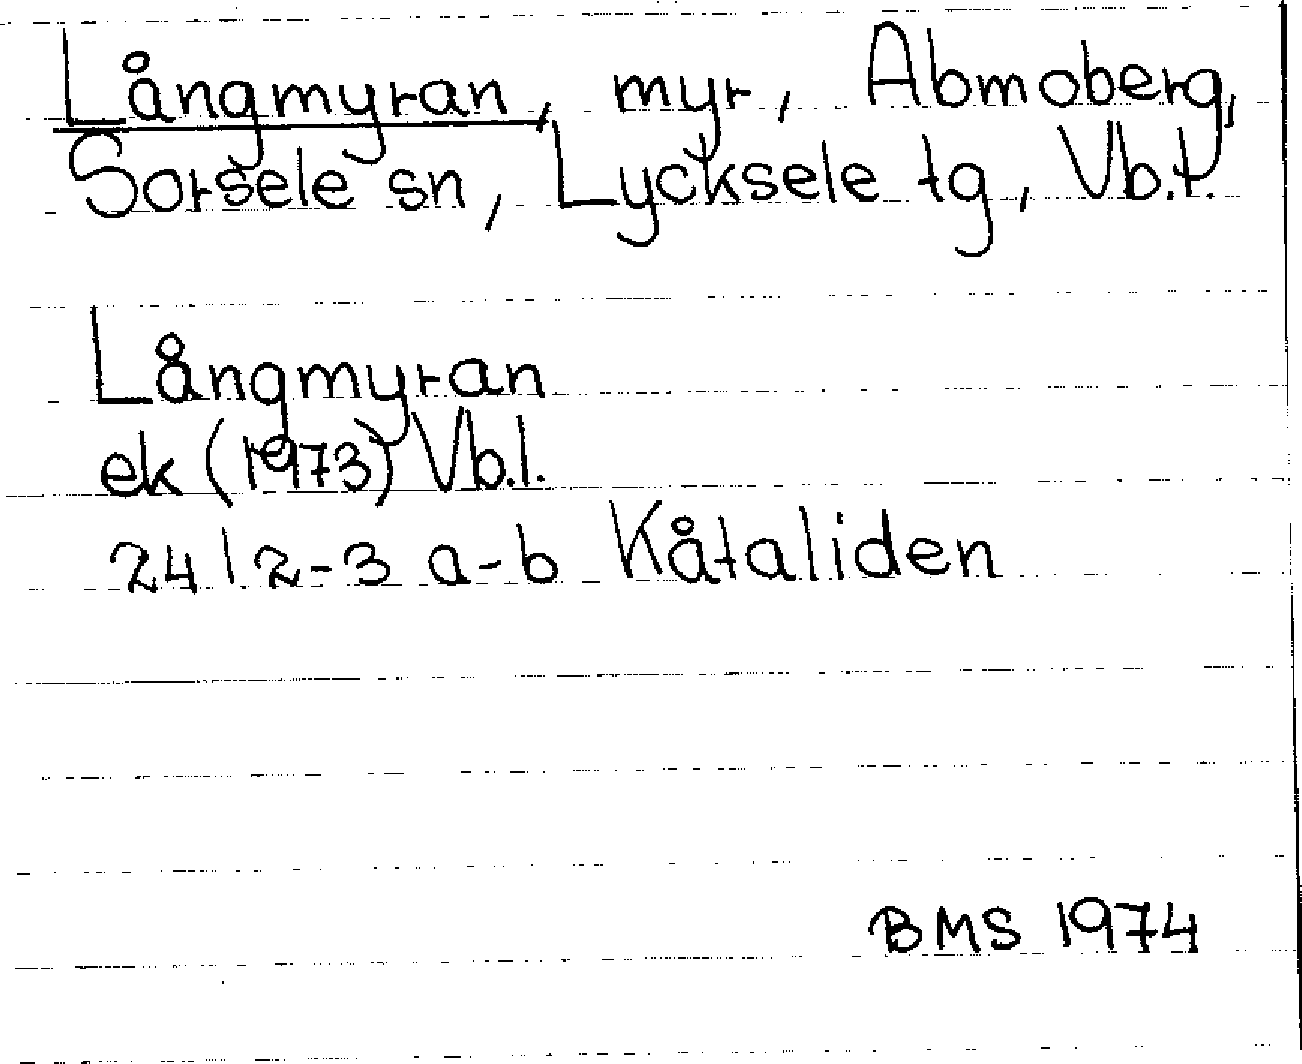 Långmyran, myr, Abmoberg,
Sorsele sn, Lycksele tg, Vb.l.
Långmyran
ek (1973) Vb.l.
24 I 2-3 a-b Kåtaliden
BMS 1974